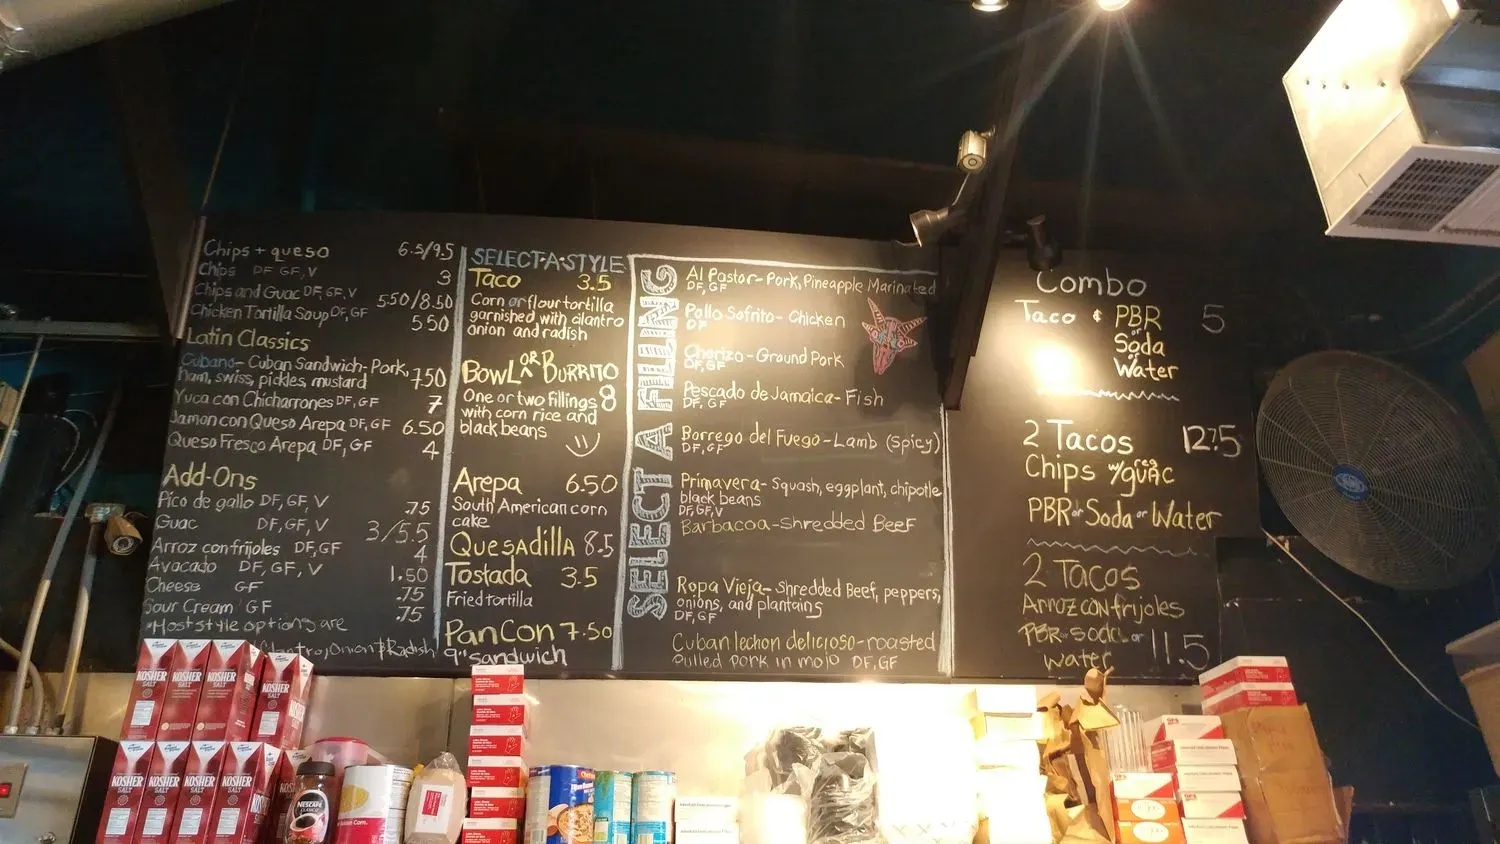 Chips + queso 6.5/9.5
Chips DF GF, V 3
Chips and Guac DF, GF, V 5.50/8.50
Chicken Tortilla Soup DF, GF 5.50
Latin Classics
Cubano- Cuban Sandwich- Pork,
ham, swiss, pickles, mustard 7.50
Yuca con Chicharrones DF, GF 7
Jamon con Queso Arepa DF, GF 6.50
Queso Fresco Arepa DF, GF 4
Add-Ons
Pico de gallo DF, GF, V .75
Guac DF, GF, V 3/5.5
Arroz con frijoles DF, GF 4
Avocado DF, GF, V 1.50
Cheese GF .75
Sour Cream GF .75
*Most style options are
Cilantro, Onion & Radish
SELECT-A-STYLE
Taco 3.5
Corn or flour tortilla
garnished with cilantro
onion and radish
BOWL OR BURRITO
One or two fillings 8
with corn rice and
black beans
Arepa 6.50
South American corn
cake
QuesAdillA 8.5
Tostada 3.5
Fried tortilla
Pan Con 7.50
9" sandwich
SELECT A FILLING
Al Pastor- Pork, Pineapple Marinated
DF, GF
Pollo Sofrito- Chicken
DF
Chorizo- Ground Pork
DF, GF
Pescado de Jamaica- Fish
DF, GF
Borrego del Fuego- Lamb (spicy)
DF, GF
Primavera- Squash, eggplant, chipotle
black beans
DF, GF, V
Barbacoa-Shredded Beef
Ropa Vieja- Shredded Beef, peppers,
onions, and plantains
DF, GF
Cuban lechon delicioso-roasted
pulled pork in mojo DF, GF
Combo
Taco & PBR 5
or
Soda
or
Water
2 Tacos 12.75
Chips w/ reg guac
PBR or Soda or Water
2 Tacos
Arroz con frijoles
PBR or soda or 11.5
water
KOSHER
SALT
KOSHER
SALT
KOSHER
SALT
KOSHER
SALT
KOSHER
SALT
KOSHER
SALT
KOSHER
SALT
KOSHER
SALT
NESCAFE
CLASICO